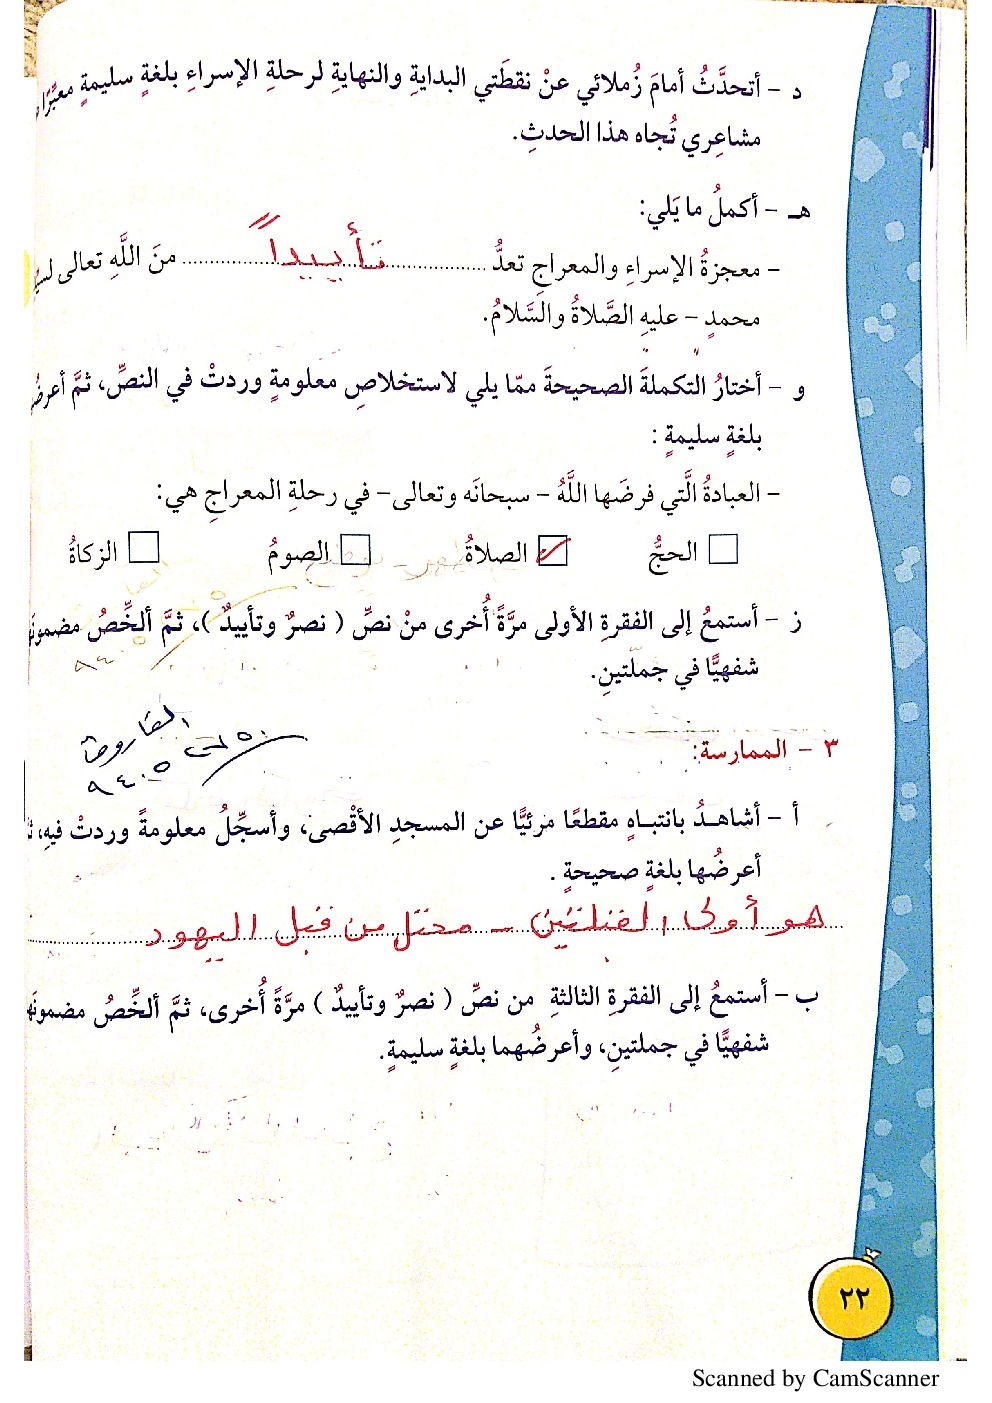 د - أتحدَّثُ أمامَ زُملائي عنْ نقطَتي البدايةِ والنهايةِ لرحلةِ الإسراءِ بلغةٍ سليمةٍ معبِّرًا
مشاعِري تُجاه هذا الحدثِ.
هـ - أكملُ ما يَلي:
- معجزةُ الإسراءِ والمعراجِ تعدُّ تأييداً منَ اللَّهِ تعالى
محمدٍ - عليهِ الصَّلاةُ والسَّلامُ.
و - أختارُ التكملةَ الصحيحةَ ممّا يلي لاستخلاصِ معلومةٍ وردتْ في النصِّ، ثمَّ
بلغةٍ سليمةٍ :
- العبادةُ الَّتي فرضَها اللَّهُ - سبحانَه وتعالى- في رحلةِ المعراجِ هي:
الحجُّ الصلاةُ الصومُ الزكاةُ
ز - أستمعُ إلى الفقرةِ الأولى مرَّةً أُخرى منْ نصِّ ( نصرٌ وتأييدٌ )، ثمَّ ألخِّصُ
شفهيًّا في جملتينِ.
٩٤٠٥
٣ - الممارسة:
أ - أشاهـدُ بانتبـاهٍ مقطعًا مرئيًّا عن المسجدِ الأقْصى، وأسجِّلُ معلومةً وردتْ فيهِ،
أعرضُها بلغةٍ صحيحةٍ .
هو أولى القبلتين - محتل من قبل اليهود
ب - أستمعُ إلى الفقرةِ الثالثةِ من نصِّ ( نصرٌ وتأييدٌ ) مرَّةً أُخرى، ثمَّ ألخِّصُ
شفهيًّا في جملتينِ، وأعرضُهما بلغةٍ سليمةٍ.
٢٢
Scanned by CamScanner